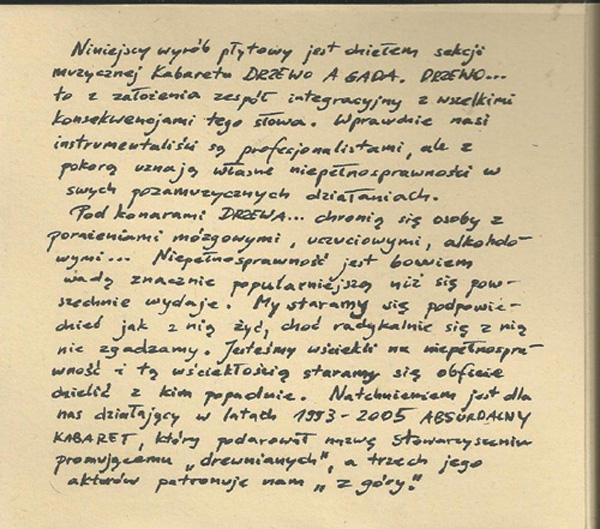 Niniejszy wyrób płytowy jest dziełem sekcji
muzycznej Kabaretu DRZEWO A GADA. DRZEWO...
to z założenia zespół integracyjny z wszelkimi
konsekwencjami tego słowa. Wprawdzie nasi
instrumentaliści są profesjonalistami, ale z
pokorą uznają własne niepełnosprawności w
swych pozamuzycznych działaniach.
Pod konarami DRZEWA... chronią się osoby z
porażeniami mózgowymi, uczuciowymi, alkoholo-
wymi... Niepełnosprawność jest bowiem
wadą znacznie popularniejszą niż się pow-
szechnie wydaje. My staramy się podpowie-
dzieć jak z nią żyć, choć radykalnie się z nią
nie zgadzamy. Jesteśmy wściekli na niepełnospra-
wność i tą wściekłością staramy się obficie
dzielić z kim popadnie. Natchnieniem jest dla
nas działający w latach 1993-2005 ABSURDALNY
KABARET, który podarował nazwę Stowarzyszeniu
promującemu „drewnianych", a trzech jego
aktorów patronuje nam „z góry".